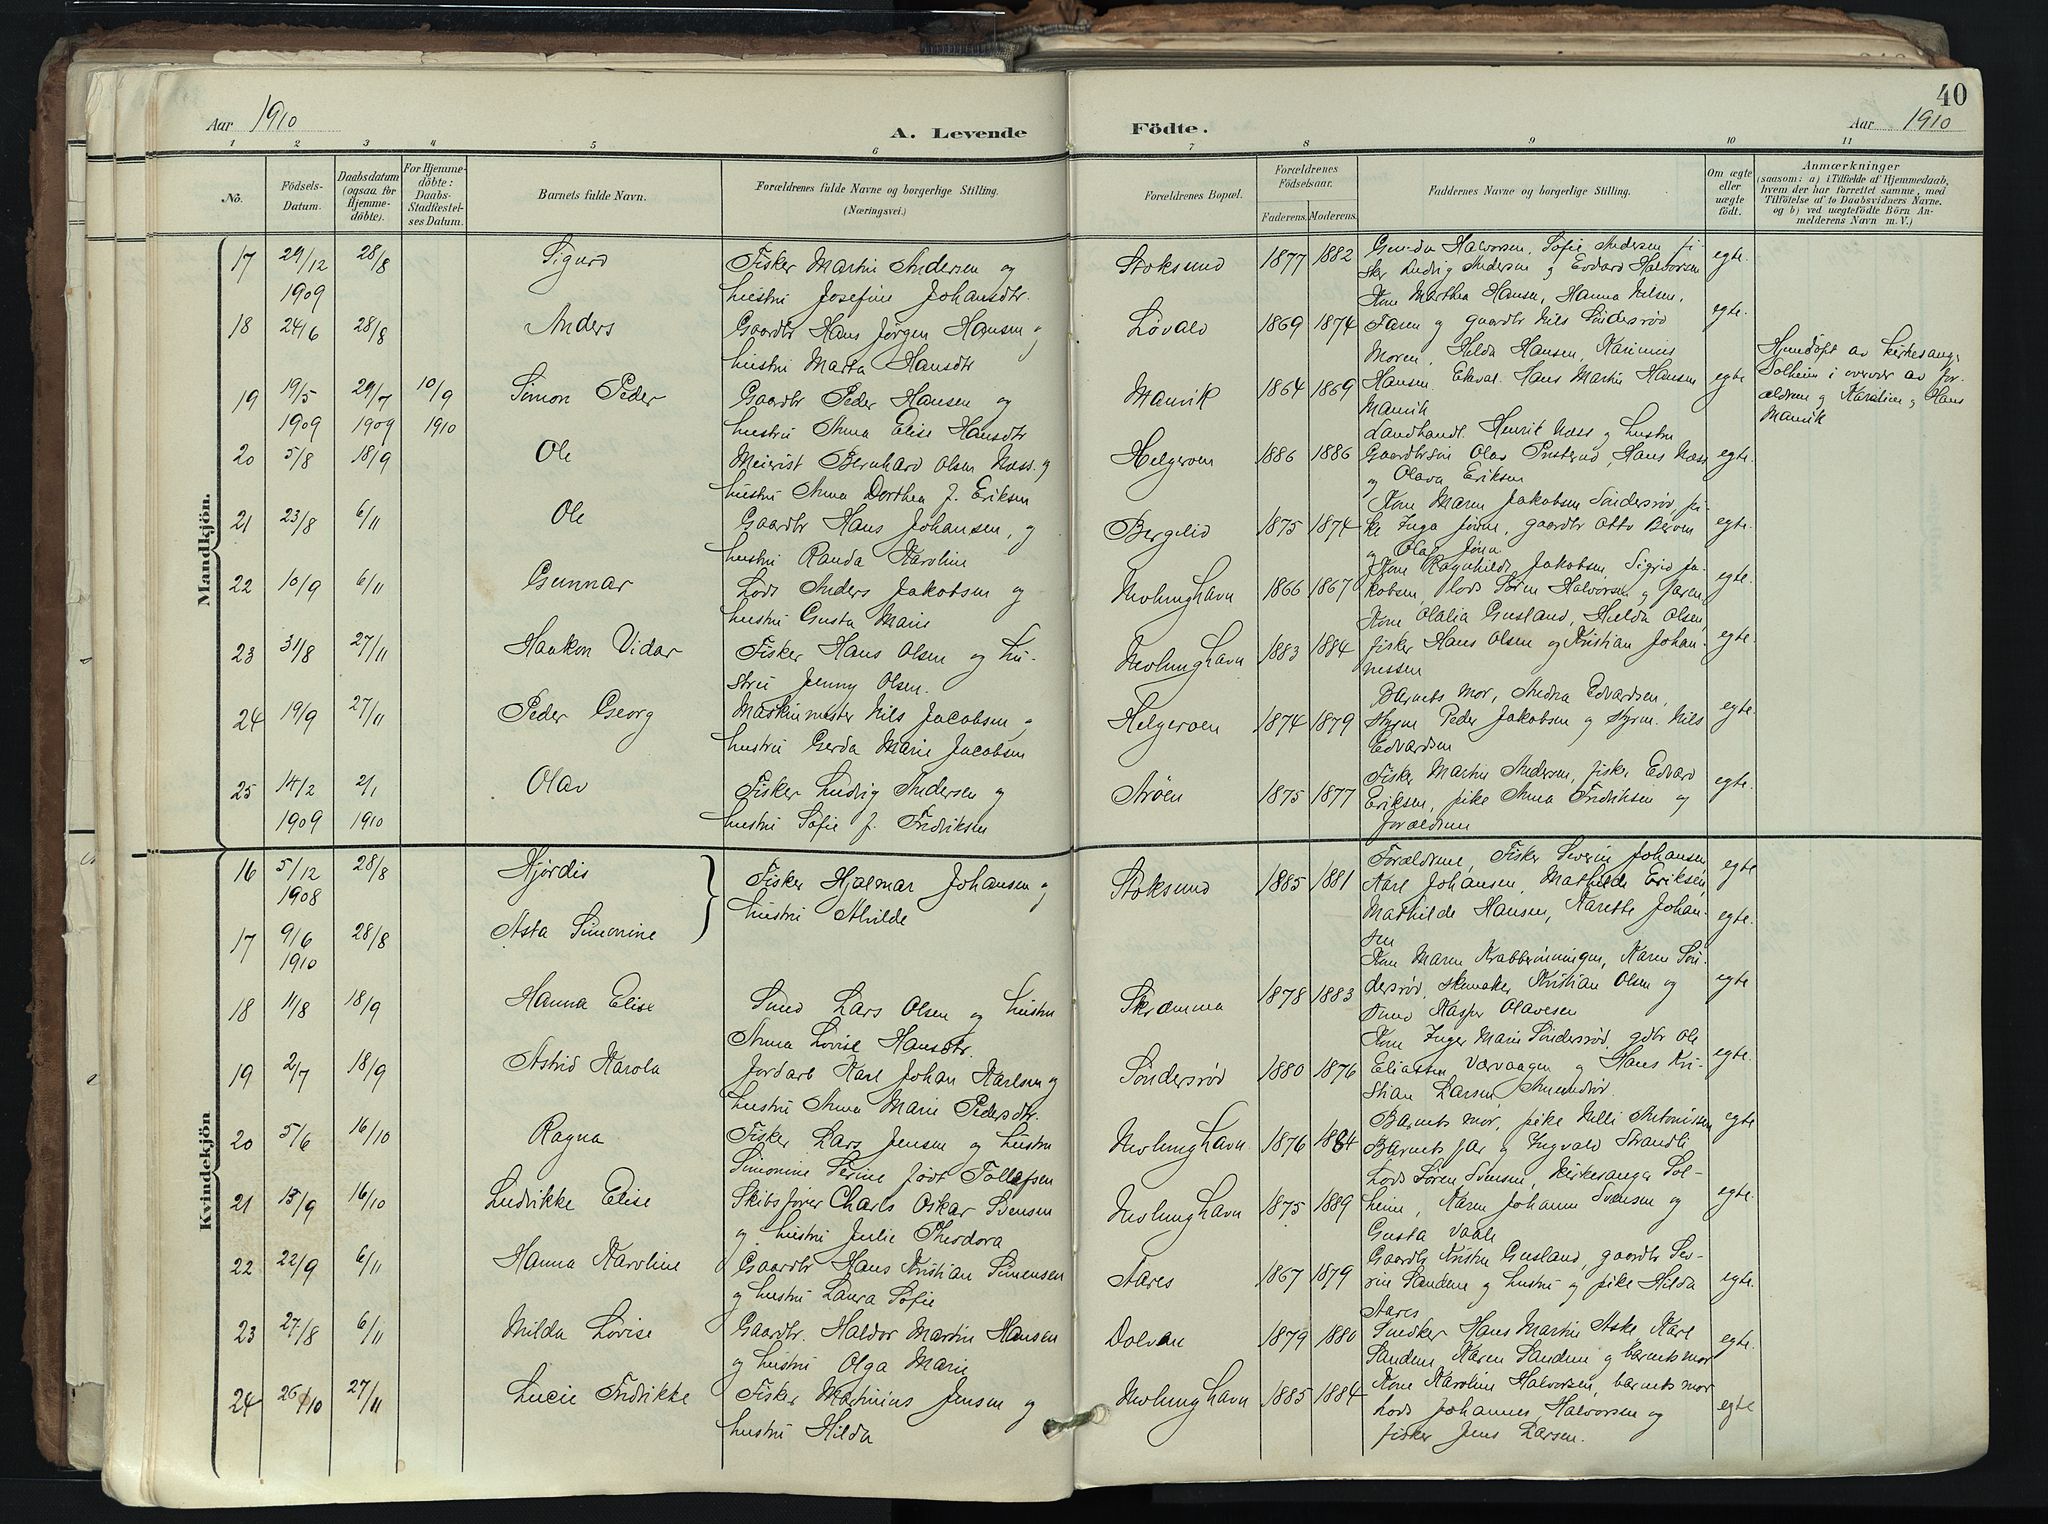 Aar 1910
A. Levende
Födte.
40
Aar 1910
1 2 3 4 5 6 7 8 9 10 11
No.
Födsels-Datum.
Daabsdatum (ogsaa for Hjemme-döbte).
For Hjemme-döbte: Daabs-Stadfæstel-ses Datum.
Barnets fulde Navn.
Forældrenes fulde Navne og borgerlige Stilling. (Næringsvei.)
Forældrenes Bopæl.
Forældrenes Födselsaar.
Faderens. Moderens.
Faddernes Navne og borgerlige Stilling.
Om ægte eller uægte födt.
Anmærkninger
(saasom: a) i Tilfælde af Hjemmedaab,
hvem der har forrettet samme, med
Tilföielse af to Daabsvidners Navne.
og b) ved uægtefödte Börn An-
melderens Navn m. V.)
Mandkjön.
17 29/12 1909 28/8 Sigurd Fisker Martin Andersen og
hustru Josefine Johansdtr. Stoksund 1877 1882 Halvorsen, Sofie Andersen, fi-
sker Ludvig Andersen og Edvard Halvorsen egte.
18 24/6 28/8 Anders Gaardbr Hans Jørgen Hansen og
hustru Marta Hansdtr Løvald 1869 1874 Kone Marthea Hansen, Hanna Nilsen,
Faren og gaardbr Nils Søndersrød egte.
19 19/5 1909 29/7 1909 10/9 1910 Simon Peder Gaardbr Peder Hansen og
hustru Anna Elise Hansdtr Manvik 1864 1869 Moren, Hilda Hansen, Karinius
Hansen Hans Martin Hansen
Manvik egte
Hjemdøpt av kirkesang.
Solheim i overvær av for-
ældrene og Karoline og Hans
Manvik
20 5/8 18/9 Ole Meierist Bernhard Olsen Næss og
hustru Anna Dorthea f. Eriksen Helgeroen 1886 1886 Landhandl. Henrik Næss og hustru
Gaardbrsøn Olav Hans Næss
og Olava Eriksen egte.
21 23/8 6/11 Ole Gaardbr Hans Johansen, og
hustru Randa Karoline Bergelid 1875 1874 Kone Maren Jakobsen Søndersrød, pi-
ke Inga gaardbr Otto
og Olav egte.
22 10/9 6/11 Gunnar Lods Anders Jakobsen og
hustru Gusta Marie Nevlunghavn 1866 1867 Kone Ragnhilds Jakobsen, Sigrid Ja-
kobsen, lods Søren Halvorsen og faren egte.
23 31/8 27/11 Haakon Vidar Fisker Hans Olsen og hu-
stru Jenny Olsen. Nevlunghavn 1883 1884 Kone Olalia Gusland, Hilda Olsen,
fisker Hans Olsen og Kristian Johan-
nessen egte.
24 19/9 27/11 Peder Georg Maskinmester Nils Jacobsen og
hustru Gerda Marie Jacobsen Helgeroen 1874 1879 Barnets mor, Andrea Edvardsen,
Styrm Peder Jakobsen og Styrm. Nils
Edvardsen egte.
25 14/2 1909 2/1 1910 Olav Fisker Ludvig Andersen og
hustru Sofie f. Fredriksen Arøen 1875 1877 Fisker Martin Andersen, fisker Edvard
Eriksen, pike Anna Fredriksen og
forældrene egte.
Kvindekjön
16 5/12 1908 28/8 Hjørdis Fisker Hjalmar Johansen og
hustru Alhilde Stoksund 1885 1881 Forældrene, Fisker Severin Johansen
Karl Johansen, Mathilde Eriksen, egte
17 9/6 1910 28/8 Asta Simonine Mathilde Hansen, Karette Johan-
sen egte.
18 11/8 18/9 Hanna Elise Smed Lars Olsen og hustru
Anna Lovise Hansdtr. Skramma 1878 1883 Kone Maren Krabberønningen, Karen Søn-
dersrød, skomaker Kristian Olsen og
Smed Kasper Olavesen egte
19 2/7 18/9 Astrid Karola Jordarb Karl Johan Karlsen og
hustru Anna Marie Pedersdtr. Søndersrød 1880 1876 Kone Inger Marie Søndersrød, gdbr Ole
Eliassen Værvaagen og Hans Kri-
stian Larsen Amundrød. egte.
20 5/6 16/10 Ragna Fisker Lars Jensen og hustru
Simonine Serine født Tollefsen Nevlunghavn 1876 1884 Barnets mor, pike Nilli Antonissen
Barnets far og Ingvald Strandli egte
21 13/9 16/10 Ludvikke Elise Skibsfører Charls Oskar Svensen
og hustru Julie Theodora Nevlunghavn 1875 1889 Lods Søren Svensen, kirkesanger Sol-
heim, Karen Johanne Svensen og
Gusta Vaale egte.
22 22/9 6/11 Hanna Karoline Gaardbr Hans Kristian Simensen
og hustru Laura Sofie Aares 1867 1879 Gaardbr Kristen Gusland, gaardbr Sev-
rin Sandene og hustru og pike Hilda
Aares egte.
23 27/8 6/11 Milda Lovise Gaardbr. Haldor Martin Hansen
og hustru Olga Marie Dolven 1879 1880 Snedker Hans Martin Aske, Karl
Sandene, Karen Sandene og barnets mor egte.
24 26/10 27/11 Lucie Fredrikke Fisker Martinius Jensen og
hustru Hilda Nevlunghavn 1885 1884 Kone Karoline Halvorsen, barnets mor
Lods Johannes Halvorsen og
fisker Jens Larsen. egte